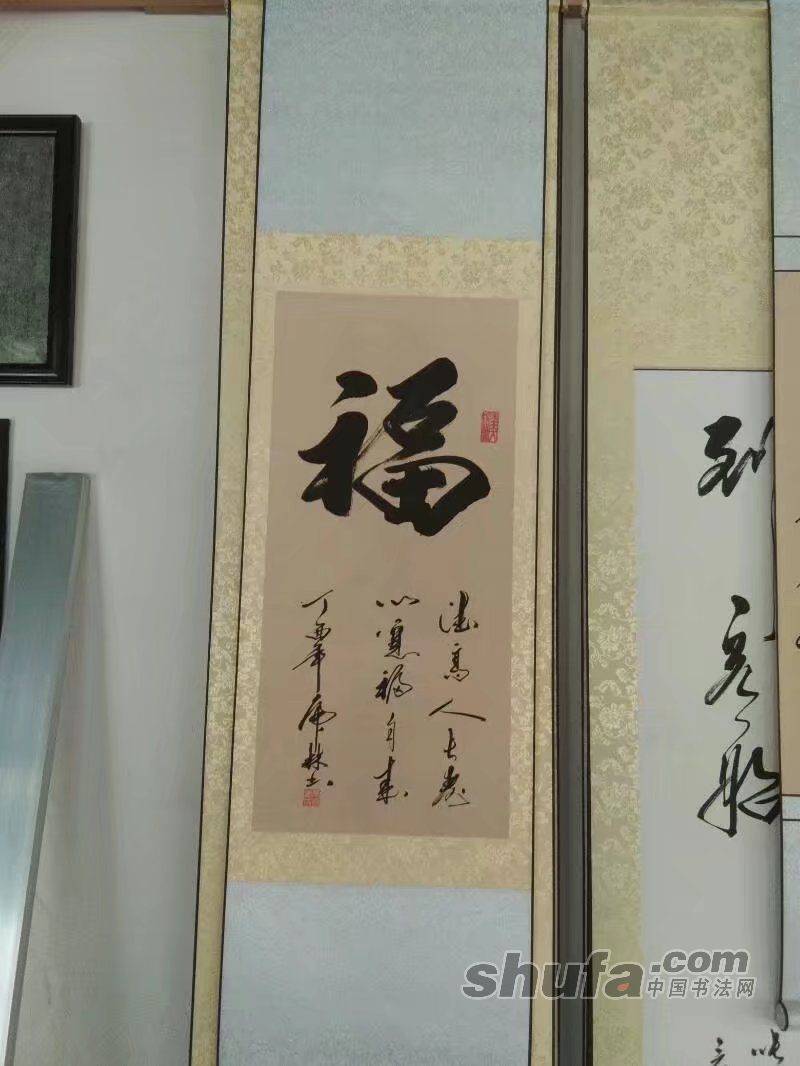 福
德高人长寿
心宽福自来
丁酉年虎林书
到
客船
shufa.com
中国书法网